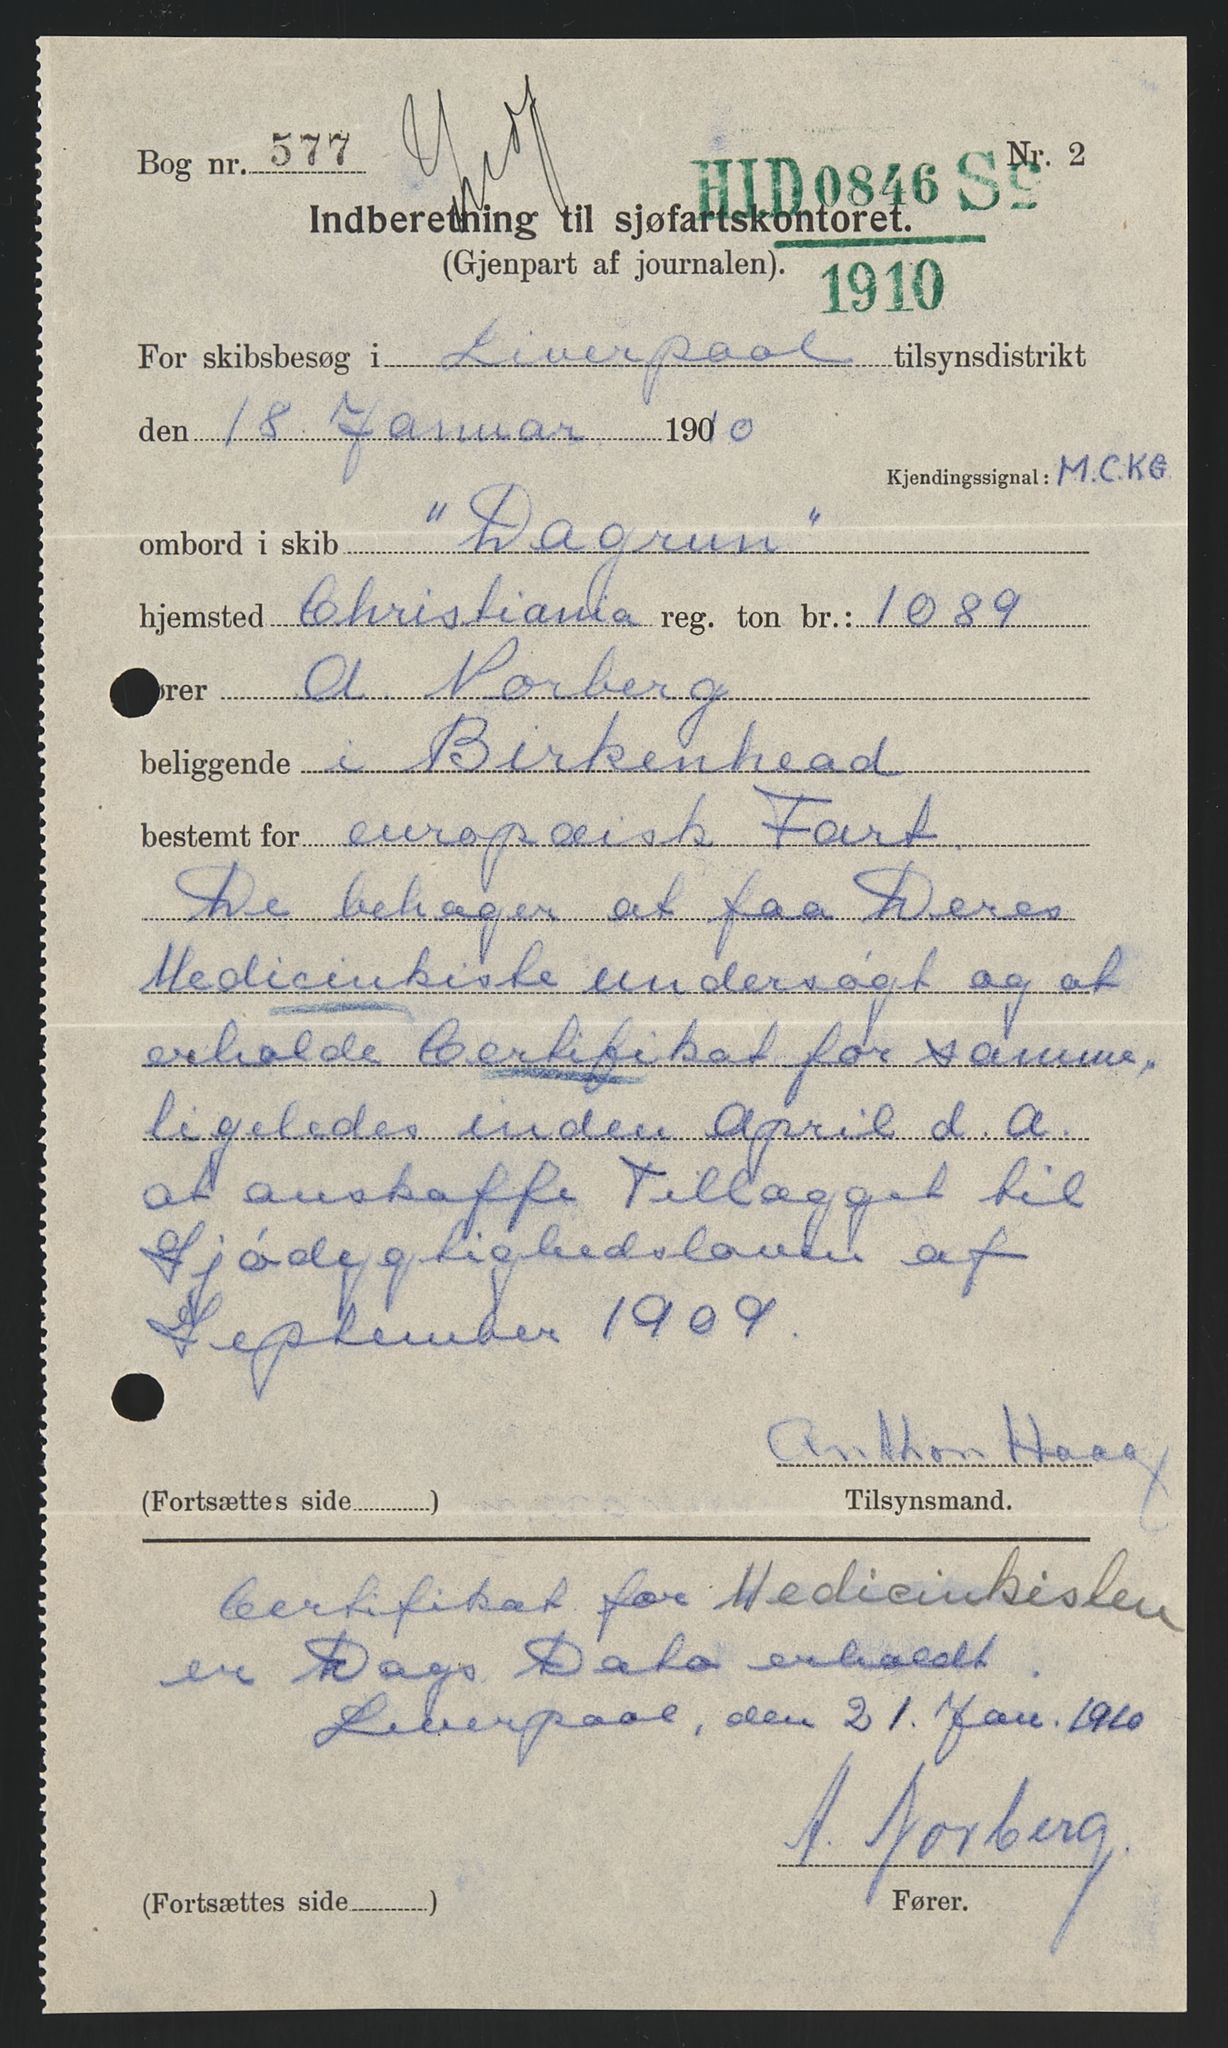 Bog nr. 577
Nr. 2
HID 0846 Sc
Indberetning til sjøfartskontoret.
(Gjenpart af journalen).
1910
For skibsbesøg i Liverpool tilsynsdistrikt
den 18 Januar 1910
Kjendingssignal: M.C.K.G.
ombord i skib "Dagrun"
hjemsted Christiania reg. ton br.: 1089
ører A. Norberg
beliggende i Birkenhead
bestemt for europæisk Fart.
De behager at faa Deres
Medicinkiste undersøgt og at
erholde Certifikat for samme,
ligeledes inden April d. A.
at anskaffe Tillægget til
Sjødygtighedsloven af
September 1909.
Anthon Haag
(Fortsættes side )
Tilsynsmand.
Certifikat for Medicinkisten
er Dags Dato erholdt.
Liverpool, den 21. Jan. 1910
A. Norberg.
(Fortsættes side )
Fører.